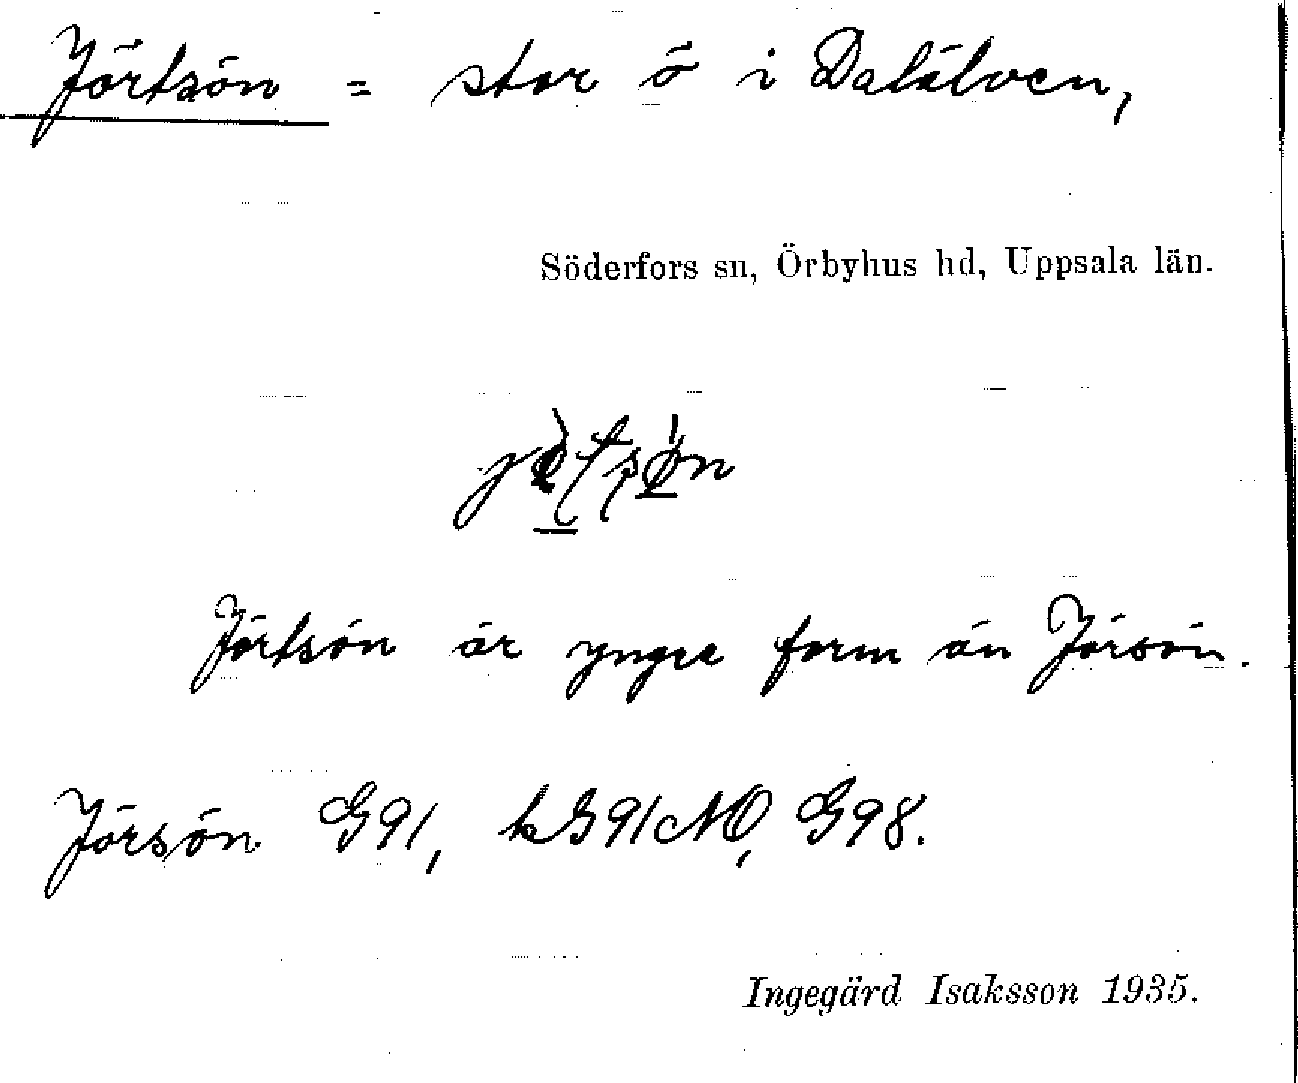 Jörtsön = stor ö i Dalälven,
Söderfors sn, Örbyhus hd, Uppsala län.
Jörtsön är yngre form än Jörsön.
Jörsön G91, kG91NO, G98.
Ingegärd Isaksson 1935.